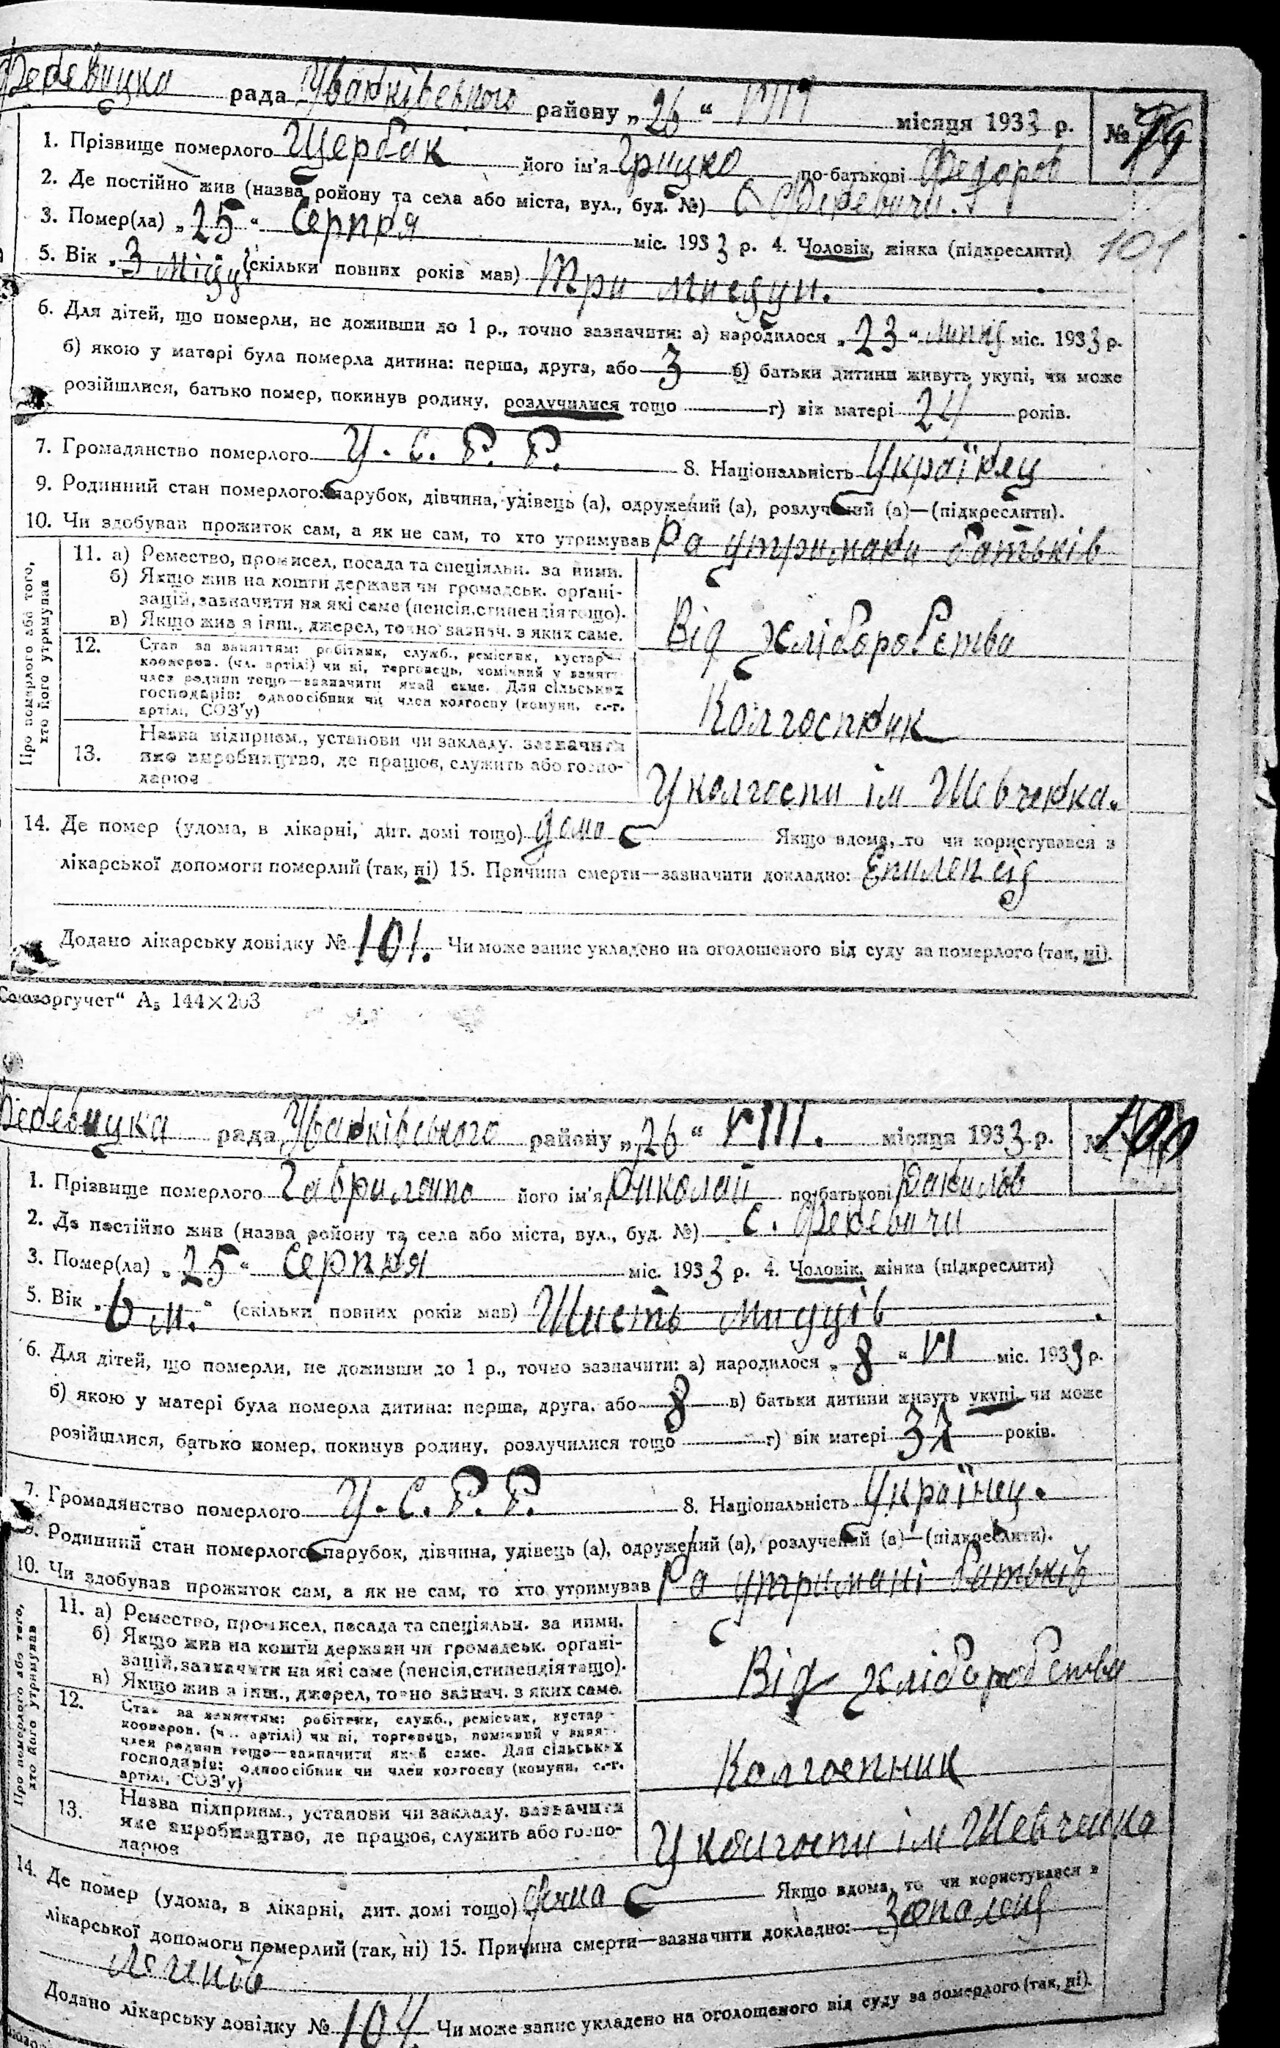 рада Уванківського району „26“ VIII місяця 1933 р. № 79
1. Прізвище померлого Щербак його ім'я Грицко по-батькові Федоров
2. Де постійно жив (назва ройону та села або міста, вул., буд. №) с. Деревичи.
101
3. Помер(ла) „25“ Серпня міс. 1933 р. 4. Чоловік, жінка (підкреслити)
5. Вік „3 місяці (скільки повних років мав) Три мисяци.
6. Для дітей, що померли, не доживши до 1 р., точно зазначити: а) народилося „23“ липня міс. 1933 р.
б) якою у матері була померла дитина: перша, друга, або 3 в) батьки дитини живуть укупі, чи може
розійшлися, батько помер, покинув родину, розлучилися тощо г) вік матері 24 років.
7. Громадянство померлого У. С. Р. Р. 8. Національність Українец
9. Родинний стан померлого: парубок, дівчина, удівець (а), одружений (а), розлучений (а)—(підкреслити).
10. Чи здобував прожиток сам, а як не сам, то хто утримував На утримани батьків
Про померлого або того, хто його утримував
11. а) Ремество, промисел, посада та спеціяльн. за ними.
б) Якщо жив на кошти держави чи громадськ. органі-
зацій, зазначити на які саме (пенсія, стипендія тощо).
в) Якщо жив з інш., джерел, точно зазнач. з яких саме.
Від хліборобства
12. Стан за заняттям: робітник, служб., ремісник, кустар-
кооперов. (чл. артілі) чи ні, торговець, помічний у занят.
член родини тощо—зазначити який саме. Для сільських
господарів: одноосібник чи член колгоспу (комуни, с.-г.
артілі, СОЗ'у)
Колгоспник
13. Назва підприєм., установи чи закладу. зазначити
яке виробництво, де працює, служить або госпо-
дарює
У колгоспи ім Шевченка.
14. Де помер (удома, в лікарні, дит. домі тощо) дома Якщо вдома, то чи користувався з
лікарської допомоги померлий (так, ні) 15. Причина смерти—зазначити докладно: Епилепсія
Додано лікарську довідку № 101. Чи може запис укладено на оголошеного від суду за померлого (так, ні).
Союзоргучет“ А₅ 144×203
рада Уванківського району „26“ VIII. місяця 1933 р. № 100
1. Прізвище померлого Гаврилюк його ім'я Николай по-батькові Данилов
2. Де постійно жив (назва району та села або міста, вул., буд. №) с. Деревичи
3. Помер(ла) „25“ Серпня міс. 1933 р. 4. Чоловік, жінка (підкреслити)
5. Вік „6 м.“ (скільки повних років мав) Шисть мисуців.
6. Для дітей, що померли, не доживши до 1 р., точно зазначити: а) народилося „8“ VI міс. 1933 р.
б) якою у матері була померла дитина: перша, друга, або 8 в) батьки дитини живуть укупі, чи може
розійшлися, батько помер, покинув родину, розлучилися тощо г) вік матері 32 років.
7. Громадянство померлого У. С. Р. Р. 8. Національність Українец.
9. Родинний стан померлого: парубок, дівчина, удівець (а), одружений (а), розлучений (а)—(підкреслити).
10. Чи здобував прожиток сам, а як не сам, то хто утримував На утримані батьків
Про померлого або того, хто його утримував
11. а) Ремество, промисел, посада та спеціяльн. за ними.
б) Якщо жив на кошти держави чи громадськ. органі-
зацій, зазначити на які саме (пенсія, стипендія тощо).
в) Якщо жив з інш., джерел, точно зазнач. з яких саме.
Від хліборобства
12. Стан за заняттям: робітник, служб., ремісник, кустар-
кооперов. (чл. артілі) чи ні, торговець, помічний у занят.
член родини тощо—зазначити який саме. Для сільських
господарів: одноосібник чи член колгоспу (комуни, с.-г.
артілі, СОЗ'у)
Колгоспник
13. Назва підприєм., установи чи закладу. зазначити
яке виробництво, де працює, служить або госпо-
дарює
У колгоспи ім Шевченка
14. Де помер (удома, в лікарні, дит. домі тощо) дома Якщо вдома, то чи користувався з
лікарської допомоги померлий (так, ні) 15. Причина смерти—зазначити докладно: Запаленя
Легенів
Додано лікарську довідку № 104. Чи може запис укладено на оголошеного від суду за померлого (так, ні).